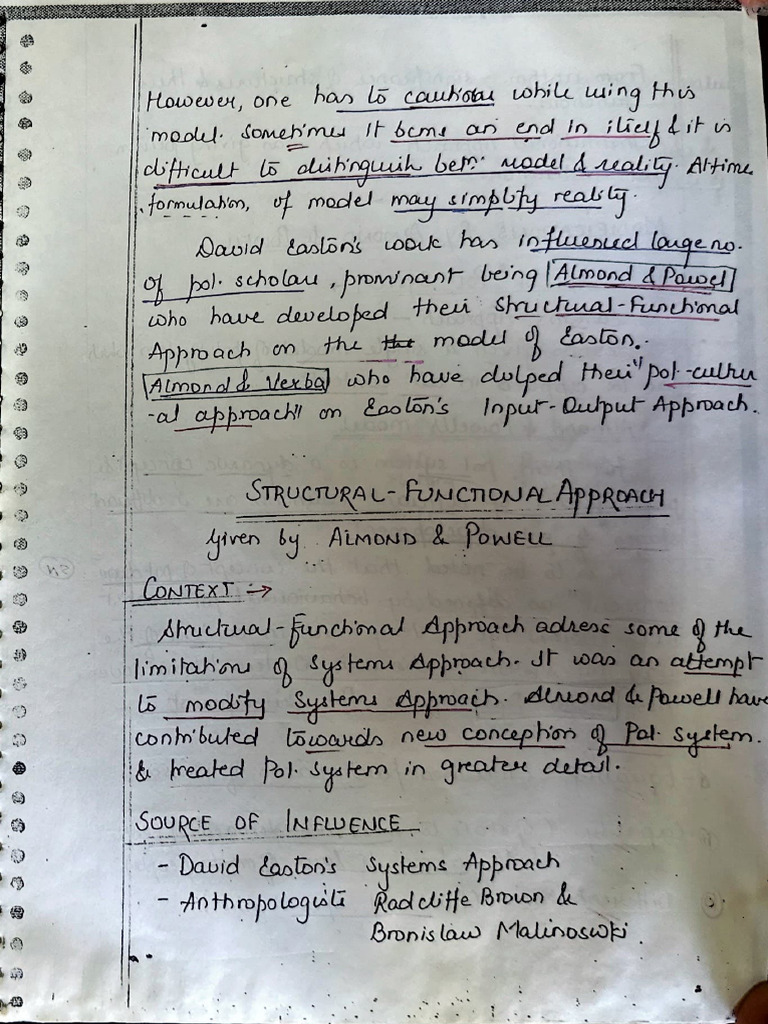 However, one has to cautious while using this
model. Sometimes it bcms an end in itself & it is
difficult to distinguish betn. model & reality. At time
formulation, of model may simplify reality.
David Easton's work has influenced large no.
of pol. scholars, prominant being Almond & Powel
who have developed their Structural-Functional
Approach on the the model of Easton.
Almond & Verba who have dvlped their "pol-cultur
-al approach" on Easton's Input-Output Approach.
STRUCTURAL-FUNCTIONAL APPROACH
Given by ALMOND & POWELL
CONTEXT :→
Structural-Functional Approach adress some of the
limitations of Systems Approach. It was an attempt
to modify Systems Approach. Almond & Powell have
contributed towards new conception of Pol. System.
& treated Pol. System in greater detail.
SOURCE OF INFLUENCE
- David Easton's Systems Approach
- Anthropologists Radcliffe Brown &
Bronislaw Malinoswki.